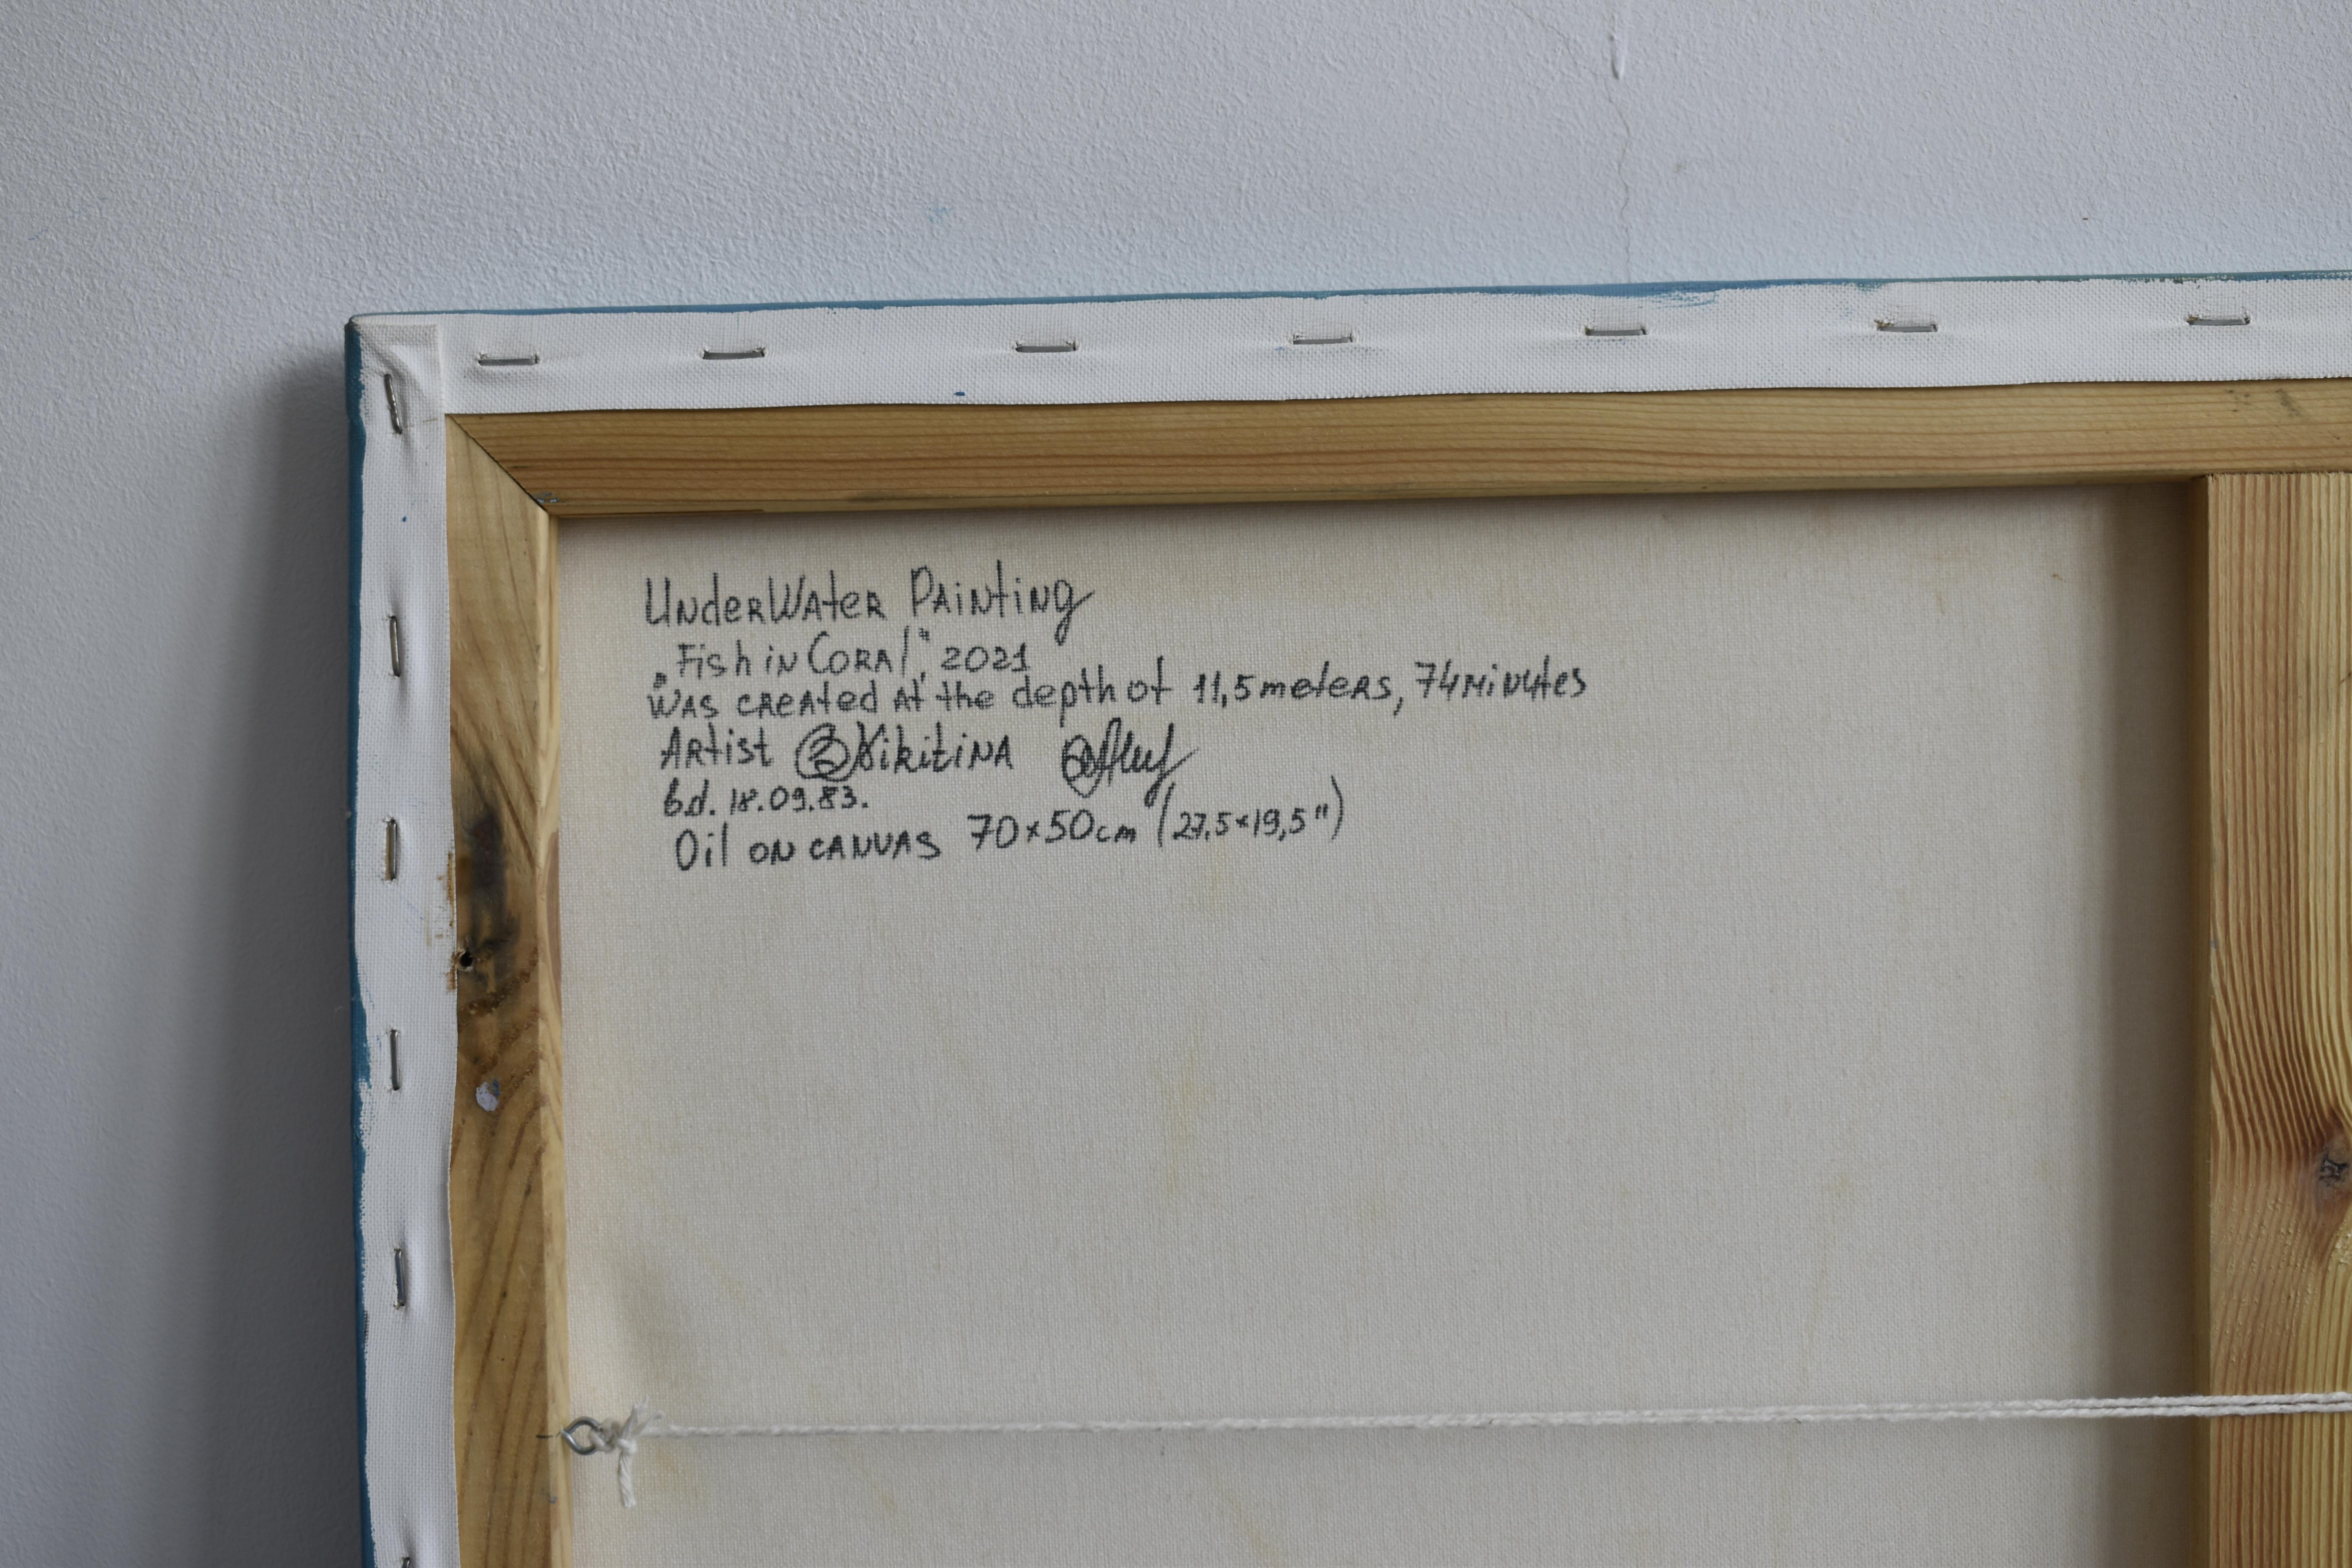 UnderWater Painting
„Fish in Coral", 2021
was created at the depth of 11,5 meters, 74 minutes
Artist Nikitina
b.d. 18.09.83.
Oil on canvas 70×50cm (27,5×19,5")